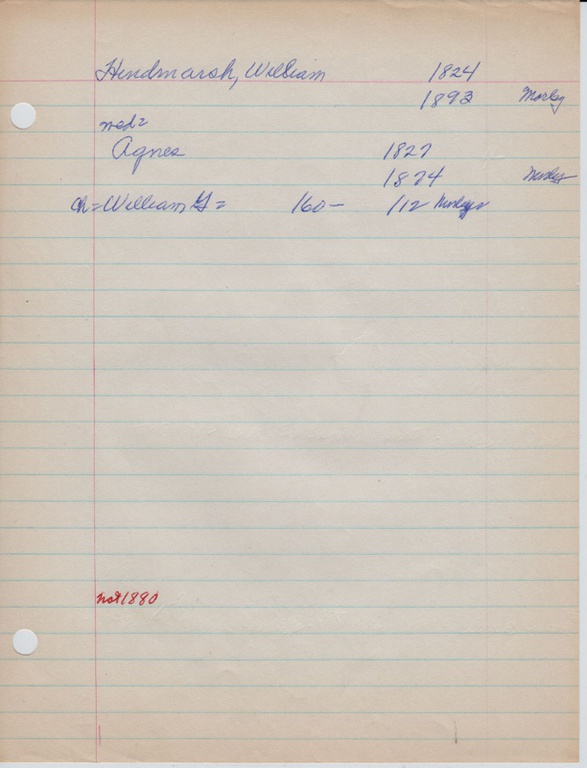 Hindmarsh, William 1824
1893 Morley
md=
Agnes 1827
1874 Morley
ch = William G = 160- 1/12 Morleys
not 1880